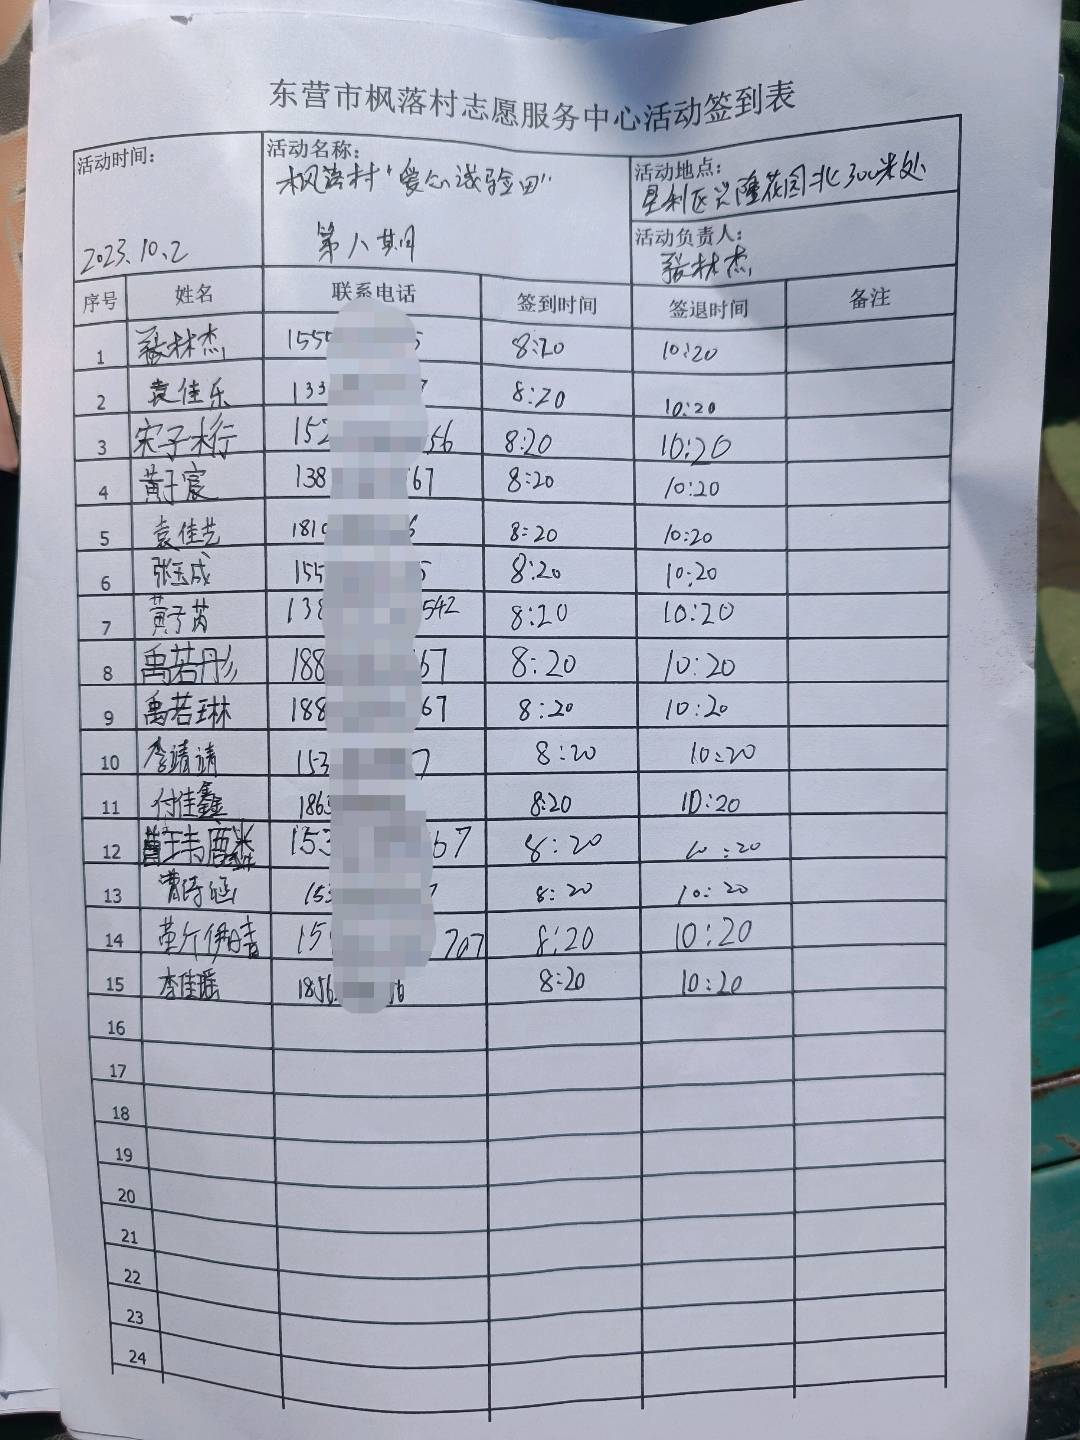 东营市枫落村志愿服务中心活动签到表
活动时间： 2023.10.2
活动名称： 枫落村“爱心试验田” 第八期
活动地点： 垦利区兴隆花园北300米处
活动负责人： 张林杰
序号 姓名 联系电话 签到时间 签退时间 备注
1 张林杰 155 5 8:20 10:20
2 袁佳乐 133 7 8:20 10:20
3 宋子桁 152 56 8:20 10:20
4 黄子宸 138 67 8:20 10:20
5 袁佳艺 181 6 8:20 10:20
6 张玉成 155 5 8:20 10:20
7 黄子芮 138 542 8:20 10:20
8 禹若彤 188 67 8:20 10:20
9 禹若琳 188 67 8:20 10:20
10 李靖 153 7 8:20 10:20
11 付佳鑫 186 8:20 10:20
12 153 67 8:20 10:20
13 曹诗涵 153 8:20 10:20
14 15 707 8:20 10:20
15 李佳瑶 1856 6 8:20 10:20
16
17
18
19
20
21
22
23
24